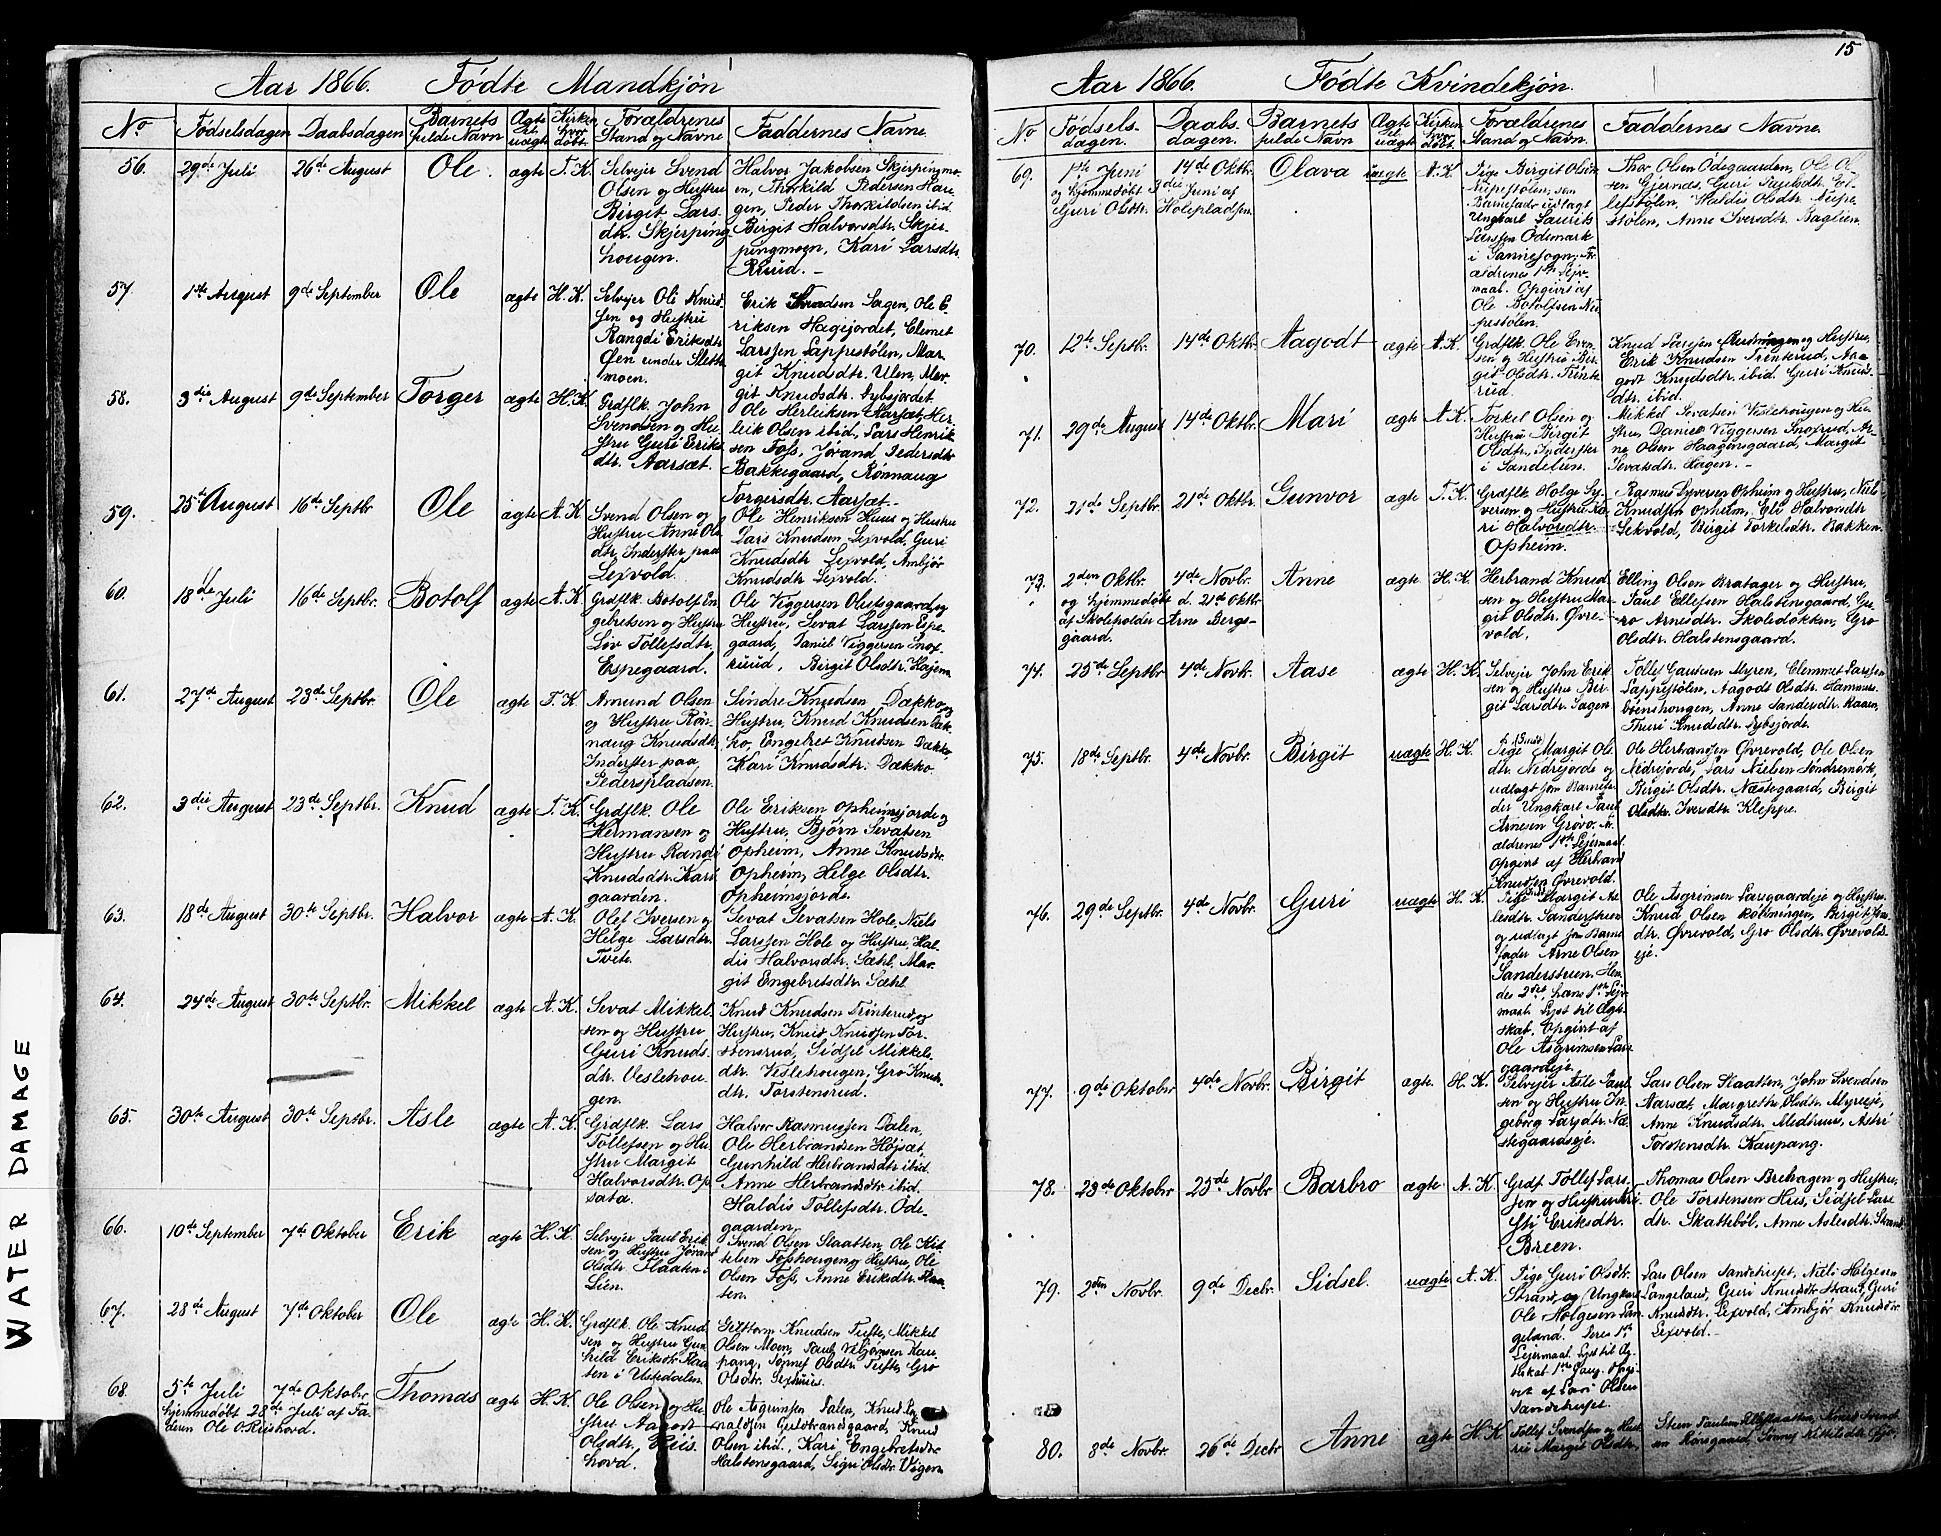 15
Aar 1866. Fødte Mandkjøn
No Fødselsdagen Daabsdagen Barnets fulde Navn Ægte el. uægte Kirken hvor døbt. Forældrenes Stand og Navne Faddernes Navne.
56. 29de Juli 26de August Ole ægte T. K.
Selvejer Svend
Olsen og Hustru
Birgit Lars-
dtr. Skjerping-
hougen.
Halvor Jakobsen Skjerpingmo-
en, Thorkild Pedersen Hau-
gen, Peder Thorkildsen ibid.
Birgit Halvorsdtr. Skjer-
pingmogn, Kari Larsdtr.
Ruud. -
57. 1ste August 9de September Ole ægte H. K.
Selvejer Ole Knud-
sen og Hustru
Rangdi Eriksdtr.
Øen under Sletto-
moen.
Erik Svendsen Sagen, Ole E-
riksen Hagijordet, Clemet
Larssen Lappestølen, Mar-
git Knudsdtr. Ulen, Mar-
git Knudsdtr. Sybsjordet
58. 3die August 9de September Torger ægte H. K.
Grdflk. John
Svendsen og Hu-
stru Guri Eriks-
dtr. Aarsæt.
Ole Herleiksen Aarsæt, Her-
leik Olsen ibid, Lars Henrik-
sen Foss, Jørand Pedersdtr.
Bakkegaard, Rønnaug
Torgersdtr. Aarsæt.
59. 25de August 16de Septbr Ole ægte A. K
Svend Olsen og
Hustru Anne Ols-
dtr. Inderster paa
Lexvold.
Ole Henriksen Huus og Hustru
Lars Knudsen Lexvold, Guri
Knudsdtr Lexvold, Ambjør
Knudsdtr Lexvold.
60. 18de Juli 16de Septbr. Botolf ægte A. K.
Grdflk. Botolf En-
gebretsen og Hustru
Liv Tollefsdtr.
Espegaard.
Ole Viggersen Olufsgaard og
Hustru, Sevat Larssen Espe-
gaard, Daniel Viggersen Snox-
ruud, Birgit Olsdtr. Hajem
61. 27de August 23de Septbr Ole ægte T. K
Amund Olsen
og Hustru Røn-
naug Knudsdtr.
Inderster paa
Pederspladsen.
Sindre Knudsen Dækko og
Hustru, Knud Knudsen Dæk-
ko, Engebret Knudsen Dækko,
Kari Knudsdtr. Dækko.
62. 3die August 23de Septbr. Knud ægte T. K.
Grdflk. Ole
Hermansen og
Hustru Randi
Knudsdtr. Karl-
gaarden.
Ole Eriksen Opheimsjorde og
Hustru, Bjørn Sevatsen
Opheim, Anne Knudsdtr.
Opheim, Helge Olsdtr.
Opheimsjorde.
63. 18de August 30te Septbr. Halvor ægte A. K.
Olet Iversen og
Helge Larsdtr.
Tveto.
Sevat Sevatsen Hole, Niels
Larssen Hole og Hustru, Hal-
dis Halvorsdtr. Sæhl, Mar-
git Engebretsdtr Sæhl
64. 24de August 30te Septbr. Mikkel ægte A. K.
Sevat Mikkel-
sen og Hustru
Guri Knuds-
dtr. Veslehou-
gen.
Knud Knudsen Trinterud og
Hustru, Knud Knudsen Tor-
stensrud, Sidsel Mikkels-
dtr. Veslehougen, Gro Knuds-
dtr. Torstensrud.
65. 30te August 30te Septbr. Asle ægte A. K.
Grdflk. Lars
Tollefsen og Hu-
stru Margit
Halvorsdtr. Op-
sata.
Halvor Rasmussen Dalen,
Ole Herbrandsen Højsæt,
Gunhild Herbrandsdtr ibid.
Anne Herbrandsdtr ibid.
Haldis Tollefsdtr. Øde-
gaarden.
66. 10de September 7de Oktober Erik ægte H. K.
Selvejer Paul Erik-
sen og Hustru Jørand
Olsdtr. Flaaten i
Lien.
Svend Olsen Slaatten, Ole Kit-
telsen Fosshougen og Hustru, Ole
Olsen Foss, Anne Eriksdtr. Flaa-
ten.
67. 28de August 7de Oktober Ole ægte H. K.
Grdflk. Ole Knud-
sen og Hustru Gun-
hild Eriksdtr. Flaa-
ten i Uksedalen.
Guttorm Knudsen Tufte, Mikkel
Olsen Moen, Paul Vebjørnsen Kau-
pang, Sønnef Olsdtr. Tufte, Gro
Olsdtr.
68. 5te Juli 7de Oktober Thomas ægte H. K.
hjemmedøbt 28de Juli af Fa-
deren Ole O. Rushovd.
Ole Olsen og Hu-
stru Aagodt
Olsdtr. Ruus-
hovd.
Ole Asgrimsen Dalen, Knud Rag-
naldsen Guldbrandsgaard, Knud
Olsen ibid., Kari Engebretsdtr
Halstensgaard, Sigri Olsdtr. Vigen
Aar 1866. Fødte Kvindekjøn.
No Fødselsdagen. Daabsdagen. Barnets fulde Navn Ægte el. uægte Kirken hvor døbt. Forældrenes Stand og Navn. Faddernes Navne.
69. 1ste Juni 14de Oktbr. Olava uægte A. K.
og hjemmedøbt 3die Juni af
Guri Olsdtr. Holepladsen.
Pige Birgit Olsdtr
Nupestølen, som
Barnefader udlagt
Ungkarl Laurits
Larssen Ødemark
i Sannesogn, For-
ældrenes 1ste Lejer-
maal. Opgivet af
Ole Botolfsen Nu-
pestølen.
Thor Olsen Ødegaarden, Ole Ol-
sen Gjernæs, Guri Truelsdtr. Col-
lefstølen, Haldis Olsdtr. Nupe-
stølen, Anne Iversdtr. Baglien.
70. 12te Septbr. 14de Oktbr. Aagodt ægte A. K.
Grdflk. Ole Even-
sen og Hustru Bir-
git Olsdtr. Trinte-
rud.
Knud Larssen Rudningen og Hustru,
Erik Knudsen Trinterud, Aa-
godt Knudsdtr. ibid. Guri Knuds-
dtr. ibid.
71. 29de August 14de Oktbr. Mari ægte A. K.
Torkel Olsen og
Hustru Birgit
Olsdtr., Inderster
i Sandelien.
Mikkel Sevatsen Veslehougen og Hu-
stru, Daniel Viggersen Snoxrud, Ar-
ne Olsen Haagensgaard, Margit
Sevatsdtr. Hagen. -
72. 21de Septbr 21de Oktbr. Gunvor ægte T. K.
Grdflk Helge Sy-
versen og Hustru Ka-
ri Halvorsdtr.
Opheim.
Rasmus Syversen Opheim og Hustru, Niels
Knudsen Opheim, Eli Halvorsdtr
Sekvold, Birgit Torkelsdtr. Bakken.
73. 2den Oktbr. 4de Novbr. Anne ægte H. K.
og hjemmedøbt d. 21de Oktbr
af Skoleholder Arne Bergs-
gaard.
Herbrand Knud-
sen og Hustru Mar-
git Olsdtr. Øvre-
vold.
Elling Olsen Bratager og Hustru,
Paul Ellefsen Halstensgaard, Gu-
ro Arnesdtr. Skoledokken, Gro
Olsdtr. Halstensgaard.
74. 25de Septbr 4de Novbr. Aase ægte H. K.
Selvejer John Erik-
sen og Hustru Bir-
git Larsdtr. Sagen.
Tollef Gautesen Myren, Clemmet Larssen
Lappestølen, Aagodt Olsdtr. Hammers-
bøenshougen, Anne Sandersdtr. Raaen,
Thuri Knudsdtr. Sybsjorde.
75. 18de Septbr. 4de Novbr. Birgit uægte H. K.
Pige Margit Ols-
dtr. Nedrejorde og
udlagt som Barnefa-
der Ungkarl Paul
Arnesen Grøvo. For-
ældrenes 1ste Lejermaal.
Opgivet af Herbrand
Knudsen Øvrevold.
Ole Herbrandsen Øvrevold, Ole Olsen
Nedrejorde, Lars Nielsen Søndremørk,
Birgit Olsdtr. Næstegaard, Birgit
Olsdtr. Iversdtr. Kleppe.
76. 29de Septbr. 4de Novbr. Guri uægte H. K.
Pige Margit As-
lesdtr. Sandersteen
og udlagt som Barne-
fader Arne Olsen
Sandersteen. Hen-
des 2det, hans 1ste Lejer-
maal. Lyst til Ægte-
skab. Opgivet af
Ole Asgrimsen Lars-
gaardeje.
Ole Asgrimsen Larsgaardeje og Hustru,
Knud Olsen Kolbningen, Birgit
dtr. Øvrevold, Gro Olsdtr. Øvrevolds-
eje.
77. 9de Oktober 4de Novbr. Birgit ægte H. K.
Selvejer Asle Paul-
sen og Hustru In-
geborg Larsdtr. Næ-
stegaardseje.
Lars Olsen Slaatten, John Svendsen
Aarsæt, Margrethe Olsdtr. Myreeje,
Anne Knudsdtr. Medhuus, Astri
Torstensdtr. Kaupang.
78. 23de Oktober 25de Novbr Barbro ægte A. K.
Grdf. Tollef Lars-
sen og Hustru Kri-
sti Eriksdtr.
Breen.
Thomas Olsen Brehagen og Hustru,
Ole Torstensen Hus, Sidsel Lars-
dtr. Skattebøl, Anne Aslesdtr. Strand.
79. 2den Novbr. 9de Decbr. Sidsel. uægte A. K.
Pige Guri Olsdtr.
Strand, og Ungkarl
Ole Holgesen Lan-
geland. Deres 1ste
Lejermaal. Lyst til Æg-
teskab 1ste Gang. Opgi-
vet af Lars Olsen
Sandehuset.
Lars Olsen Sandehuset, Niels Holgesen
Langeland, Guri Knudsdtr. Strand, Guri
Knudsdtr. Lexvold, Ambjør Knudsdtr
Lexvold.
80. 8de Novbr. 26de Decbr Anne ægte H. K
Tollef Svendsen og Hust-
ru Margit Olsdtr,
Steen Paulsen Villandslaatten, Knud Svend-
sen Rønsgaard, Sønnef Kittelsdtr.
WATER DAMAGE